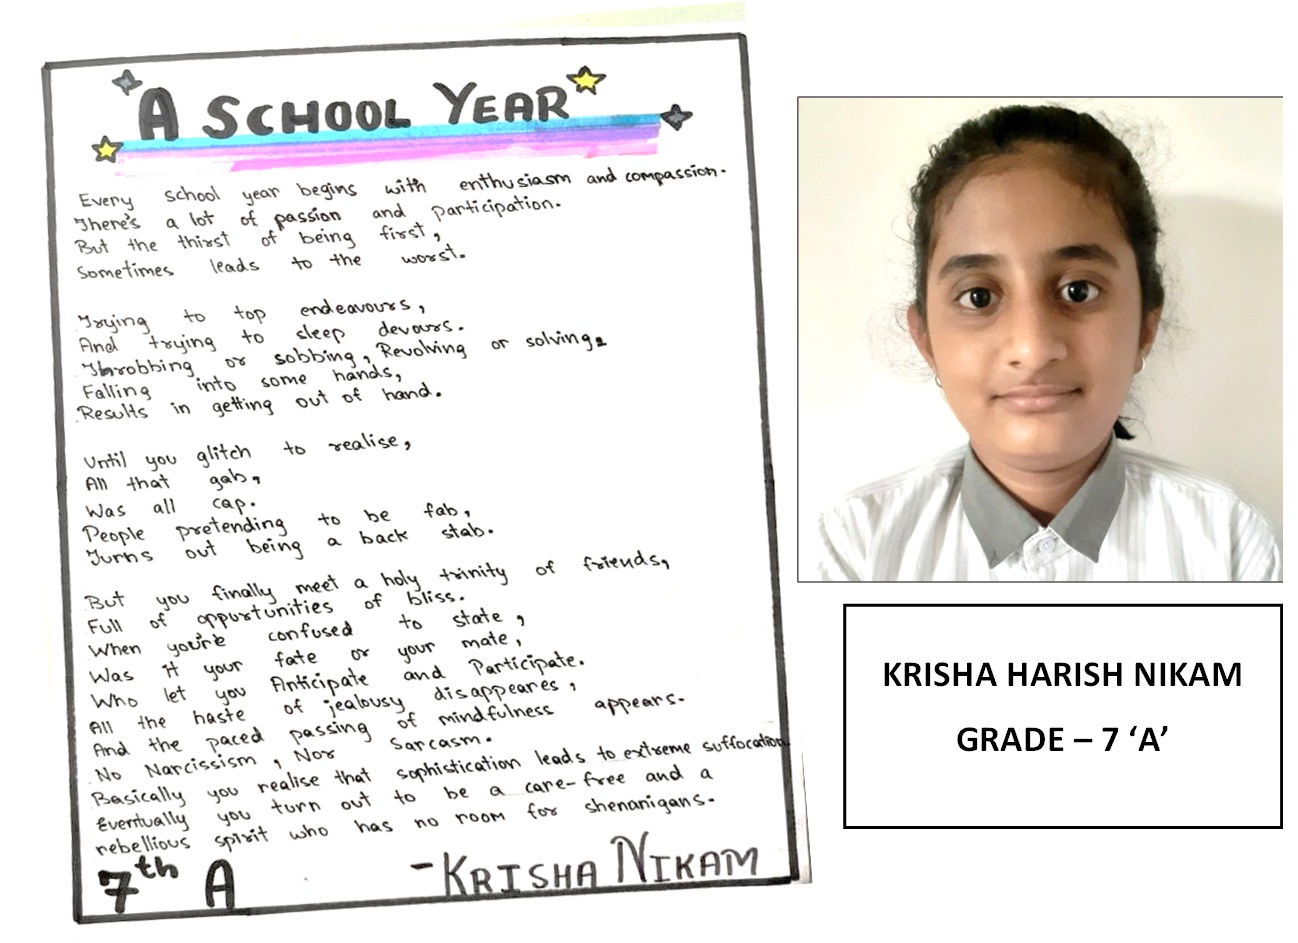 A SCHOOL YEAR
Every school year begins with enthusiasm and compassion.
There's a lot of passion and participation.
But the thirst of being first,
Sometimes leads to the worst.
Trying to top endeavours,
And trying to sleep devours.
Throbbing or sobbing, Revolving or solving,
Falling into some hands,
Results in getting out of hand.
Until you glitch to realise,
All that gab,
Was all cap.
People pretending to be fab,
Turns out being a back stab.
But you finally meet a holy trinity of friends,
Full of oppurtunities of bliss.
When you're confused to state,
Was it your fate or your mate,
Who let you Anticipate and Participate.
All the haste of jealousy disappeares,
And the paced passing of mindfulness appears.
No Narcissism, Nor Sarcasm.
Basically you realise that sophistication leads to extreme suffocation.
Eventually you turn out to be a care-free and a
rebellious spirit who has no room for shenanigans.
7th A -KRISHA NIKAM
KRISHA HARISH NIKAM
GRADE – 7 ‘A’